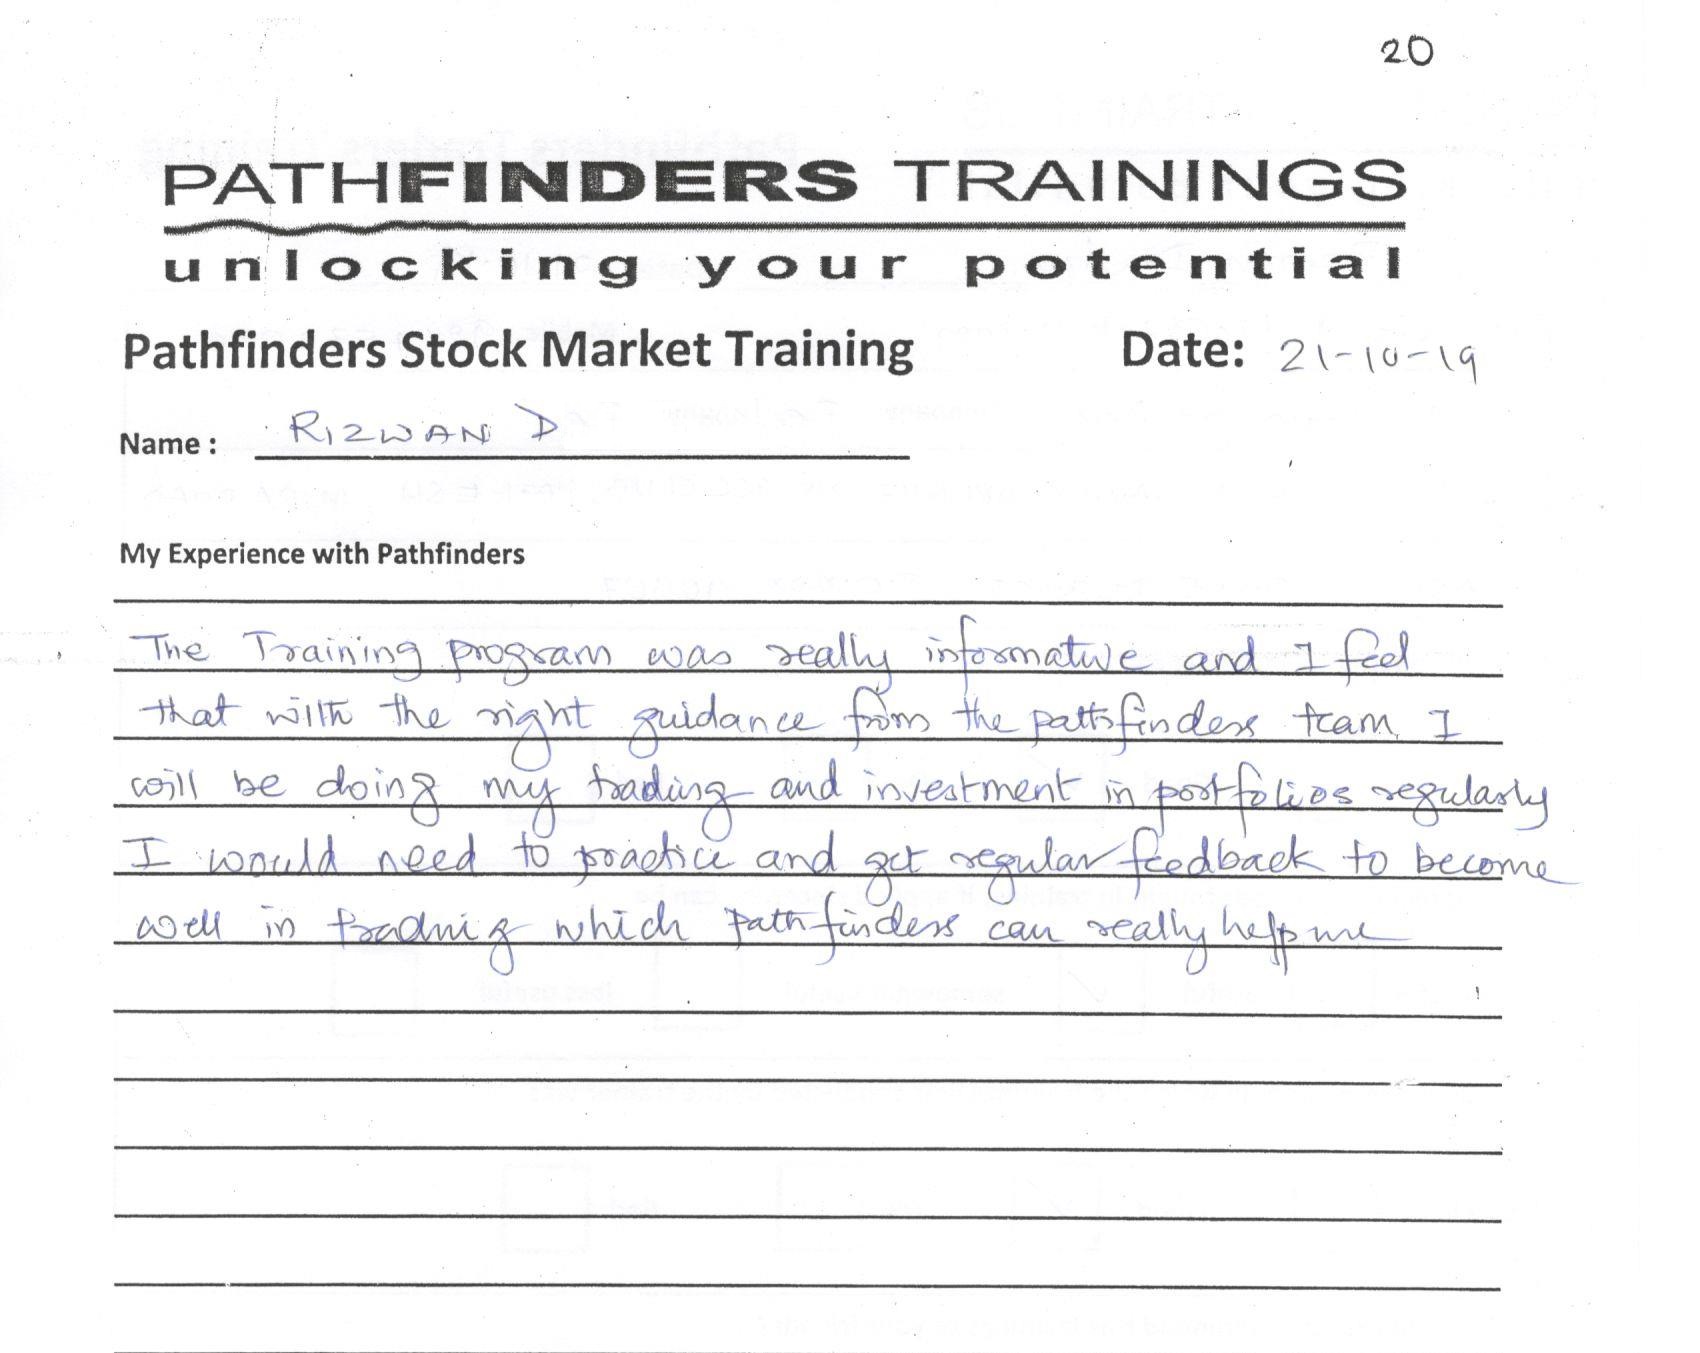 20
PATHFINDERS TRAININGS
unlocking your potential
Pathfinders Stock Market Training Date: 21-10-19
Name : RIZWAN D
My Experience with Pathfinders
The Training program was really informative and I feel
that with the right guidance from the pathfinders team I
will be doing my trading and investment in portfolios regularly
I would need to practice and get regular feedback to become
well in trading which Pathfinders can really help me